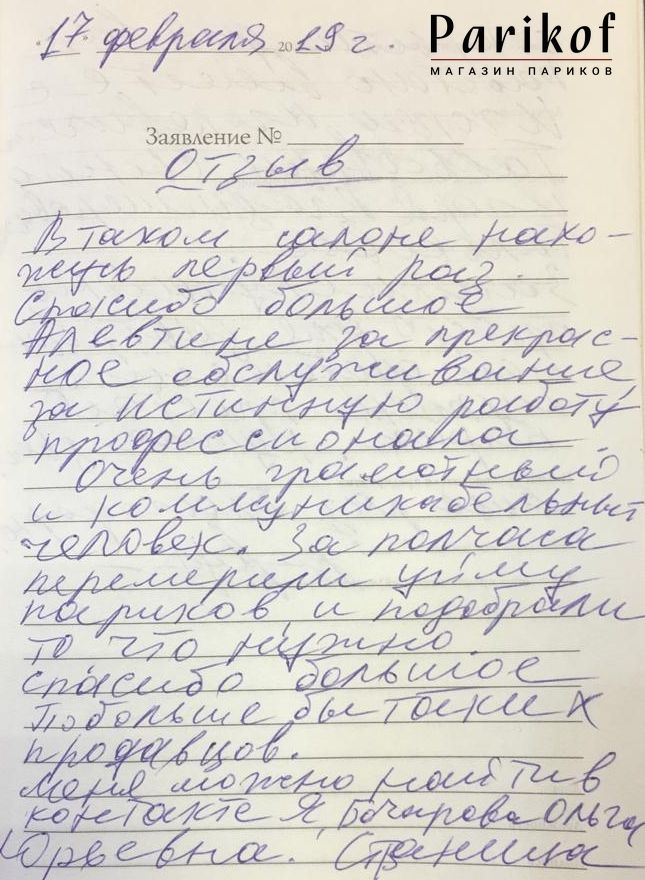 "17" февраля 2019 г.
Parikof
МАГАЗИН ПАРИКОВ
Заявление №
Отзыв
В таком салоне нахо-
жусь первый раз.
Спасибо большое
Алевтине за прекрас-
ное обслуживание,
за истинную работу
профессионала.
Очень грамотный
и коммуникабельный
человек. За полчаса
перемерили уйму
париков и подобрали
то что нужно
спасибо большое
Побольше бы таких
продавцов.
меня можно найти в
контакте Я, Бочарова Ольга
Юрьевна. Станица